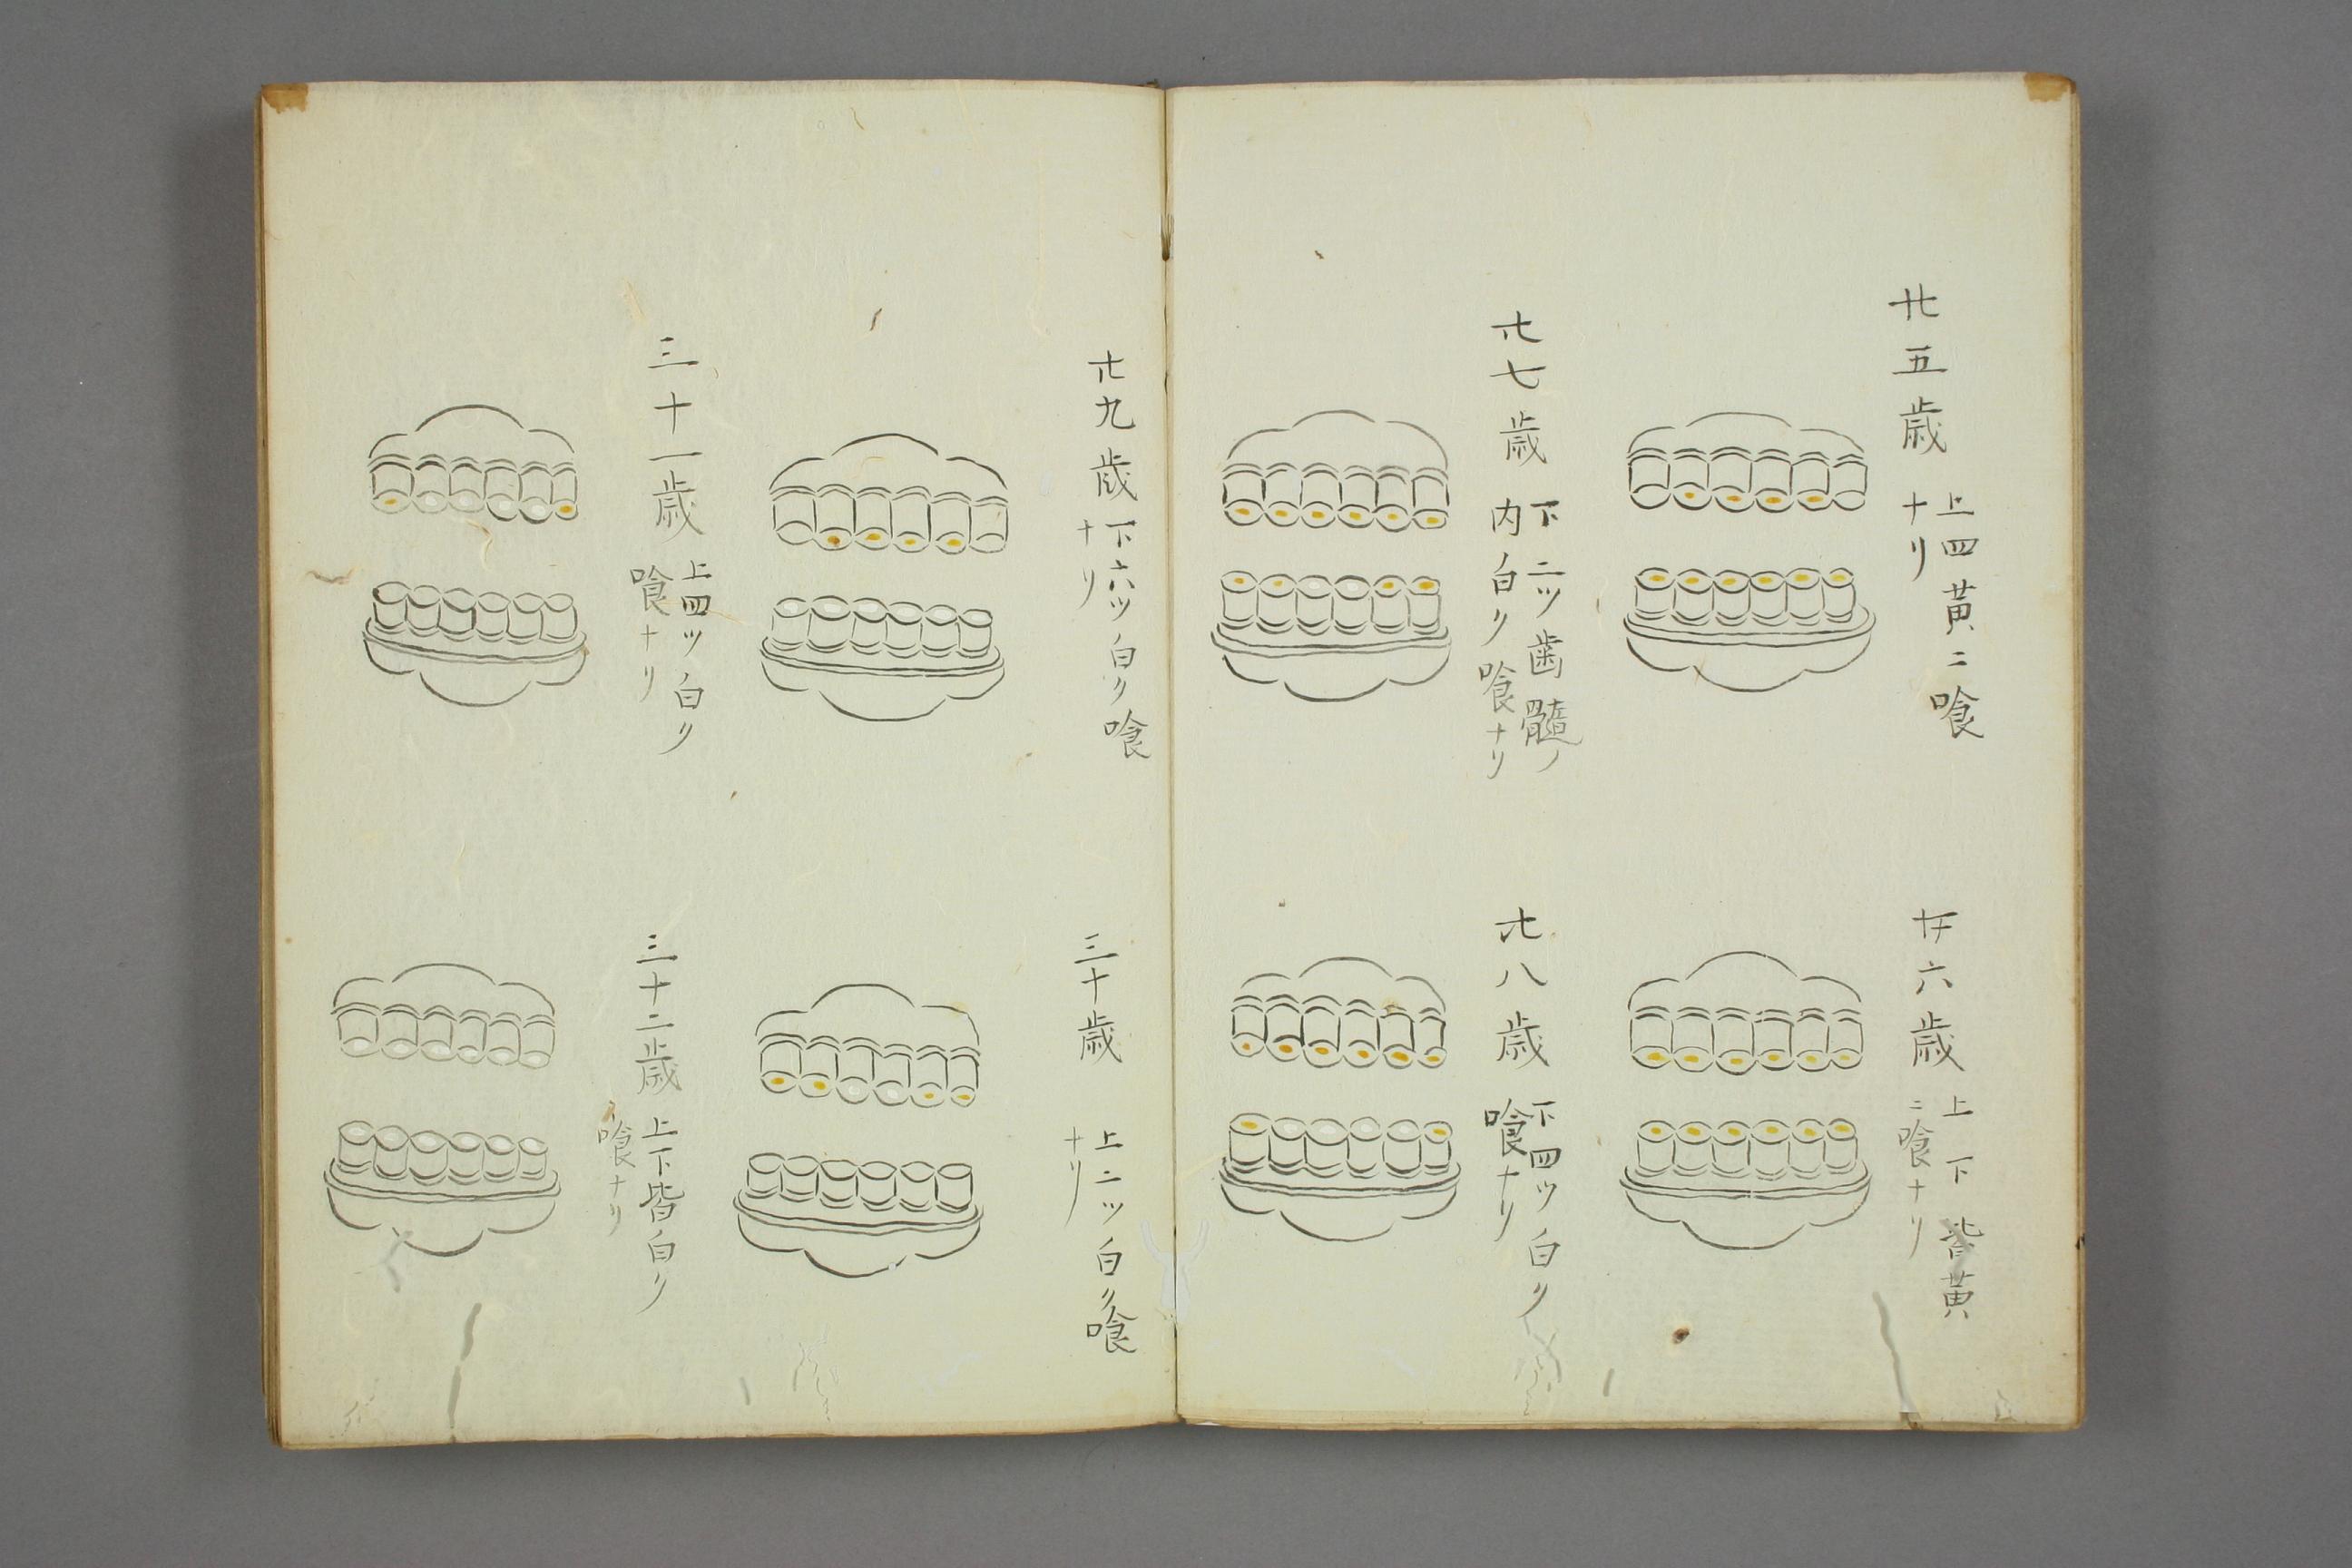 廿五歳
上四黄ニ喰
ナリ
廿六歳
上下皆黄
ニ喰ナリ
廿七歳
下二ツ歯髓ノ
内白ク喰ナリ
廿八歳
下四ツ白ク
喰ナリ
廿九歳
下六ツ白ク喰
ナリ
三十歳
上二ツ白ク喰
ナリ
三十一歳
上四ツ白ク
喰ナリ
三十二歳
上下皆白ク
喰ナリ